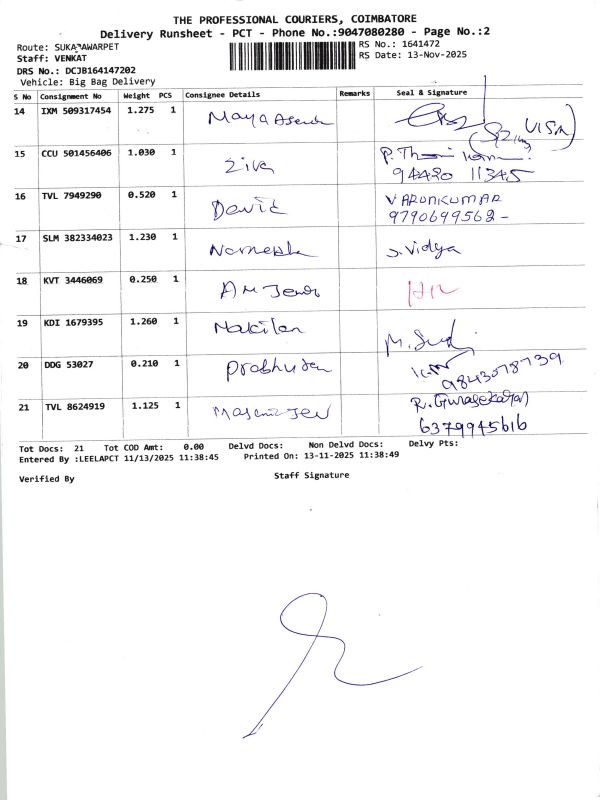 THE PROFESSIONAL COURIERS, COIMBATORE
Delivery Runsheet - PCT - Phone No.:9047080280 - Page No.:2
Route: SUKARAWARPET
RS No.: 1641472
Staff: VENKAT
RS Date: 13-Nov-2025
DRS No.: DCJB164147202
Vehicle: Big Bag Delivery
S No Consignment No Weight PCS Consignee Details Remarks Seal & Signature
14 IXM 509317454 1.275 1 Maya
15 CCU 501456406 1.030 1 Ziva P.
94420 11345
16 TVL 7949290 0.520 1 David VARUNKUMAR
9790699562-
17 SLM 382334023 1.230 1 S. Vidya
18 KVT 3446069 0.250 1 AM
19 KDI 1679395 1.260 1 Makilan M.
20 DDG 53027 0.210 1
9843078739
21 TVL 8624919 1.125 1 R. Gunasekaran
6379945616
Tot Docs: 21 Tot COD Amt: 0.00 Delvd Docs: Non Delvd Docs: Delvy Pts:
Entered By :LEELAPCT 11/13/2025 11:38:45 Printed On: 13-11-2025 11:38:49
Verified By Staff Signature